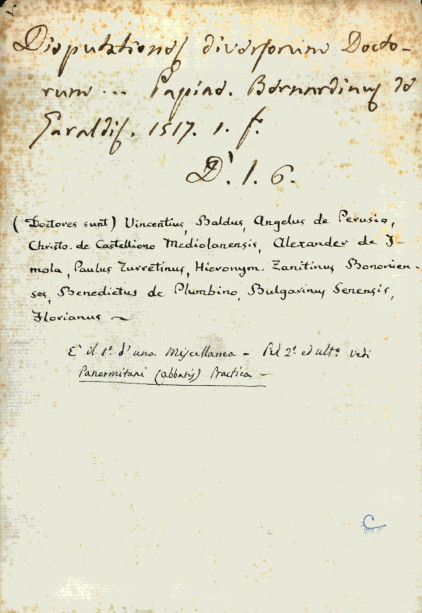 Disputationes diversorum Docto-
rum ... Papiae. Bernardinus de
Garaldis. 1517. 1. f.
D'. 1. 6.
(Doctores sunt) Vincentius, Baldus, Angelus de Perusio,
Christo. de Castelliono Mediolanensis, Alexander de I-
mola, Paulus Turretinus, Hieronym. Zanitinus Bononien-
ses, Benedictus de Plumbino, Bulgarinus Senensis,
Florianus ~
E' il 1º d'una Miscellanea - Pel 2º ed ultº vedi
Panormitani (abbatis) Practica -
C